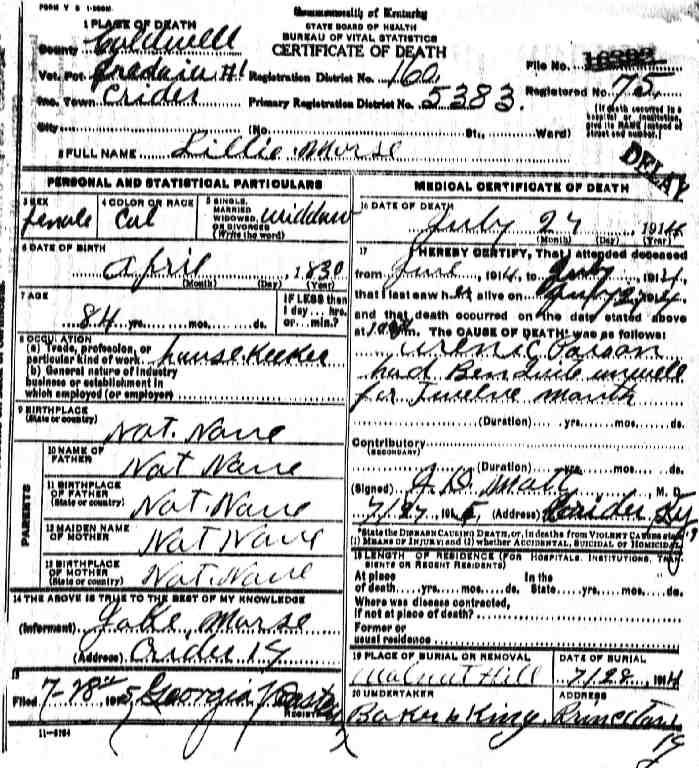 FORM V S 1-
Commonwealth of Kentucky
STATE BOARD OF HEALTH
BUREAU OF VITAL STATISTICS
CERTIFICATE OF DEATH
1 PLACE OF DEATH
County Caldwell
Vot. Pct. Fredonia #1 Registration District No. 160
File No.
Registered No. 75
Inc. Town Crider Primary Registration District No. 5383
City (No. St., Ward)
(If death occurred in a hospital or institution, give its NAME instead of street and number.)
2 FULL NAME Lillie Morse
DELAY
PERSONAL AND STATISTICAL PARTICULARS
3 SEX female
4 COLOR OR RACE Col
5 SINGLE, MARRIED WIDOWED, OR DIVORCED (Write the word) widdow
6 DATE OF BIRTH
April, 1830
(Month) (Day) (Year)
7 AGE
84 yrs. mos. ds.
IF LESS than 1 day... hrs. or... min.?
8 OCCUPATION
(a) Trade, profession, or particular kind of work housekeeper
(b) General nature of industry business or establishment in which employed (or employer)
9 BIRTHPLACE (State or country) Not None
PARENTS
10 NAME OF FATHER Not None
11 BIRTHPLACE OF FATHER (State or country) Not None
12 MAIDEN NAME OF MOTHER Not None
13 BIRTHPLACE OF MOTHER (State or country) Not None
14 THE ABOVE IS TRUE TO THE BEST OF MY KNOWLEDGE
(Informant) Jake Morse
(Address) Crider Ky
15
Filed 7-28th 1915 Georgia REGISTRAR
11-5184
MEDICAL CERTIFICATE OF DEATH
16 DATE OF DEATH
July 27, 1914
(Month) (Day) (Year)
17 I HEREBY CERTIFY, That I attended deceased
from June, 1914, to July, 1914,
that I last saw her alive on July 27, 1914,
and that death occurred on the date stated above
at m. The CAUSE OF DEATH was as follows:
Urenic Poison
had Ben unwell
for Twelve Month
(Duration) yrs. mos. ds.
Contributory
(SECONDARY)
(Duration) yrs. mos. ds.
(Signed) M. D.
7/27, 1915 (Address) Crider Ky
*State the DISEASE CAUSING DEATH, or, in deaths from VIOLENT CAUSES state (1) MEANS OF INJURY; and (2) whether ACCIDENTAL, SUICIDAL or HOMICIDAL
18 LENGTH OF RESIDENCE (FOR HOSPITALS, INSTITUTIONS, TRANSIENTS OR RECENT RESIDENTS)
At place of death yrs. mos. ds. In the State yrs. mos. ds.
Where was disease contracted, if not at place of death?
Former or usual residence
19 PLACE OF BURIAL OR REMOVAL
Walnut Hill
DATE OF BURIAL
7/28, 1914
20 UNDERTAKER
Baker & King
ADDRESS
Princeton
Ky